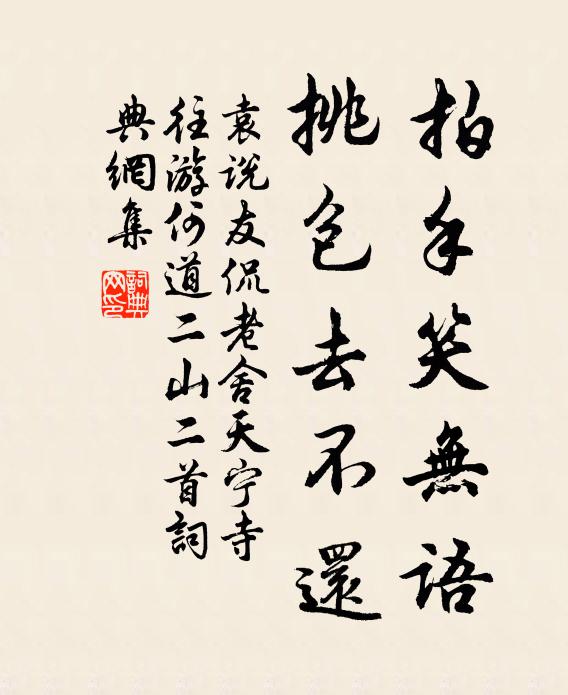 拍手笑無語
挑包去不還
袁说友侃老舍天宁寺
往游何道二山二首詞
典網集
詞典
网印